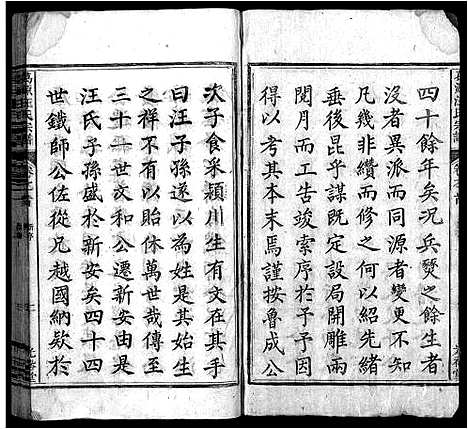 四十餘年矣況兵燹之餘生者
沒者異派而同源者變更不一
凡幾非纘而修之何以紹先緒
垂後昆乎謀既定設局開雕兩
閱月而工告竣索序於予予因
得以考其本末焉謹按魯成公
次子食采潁川生有文在其手
曰汪子孫遂以為氏是其始生
之祥不有以貽休萬世哉傳至
三十一世文和公遷新安由是
汪氏子孫盛於新安矣四十四
世鐵師公佐從兄越國納欵於